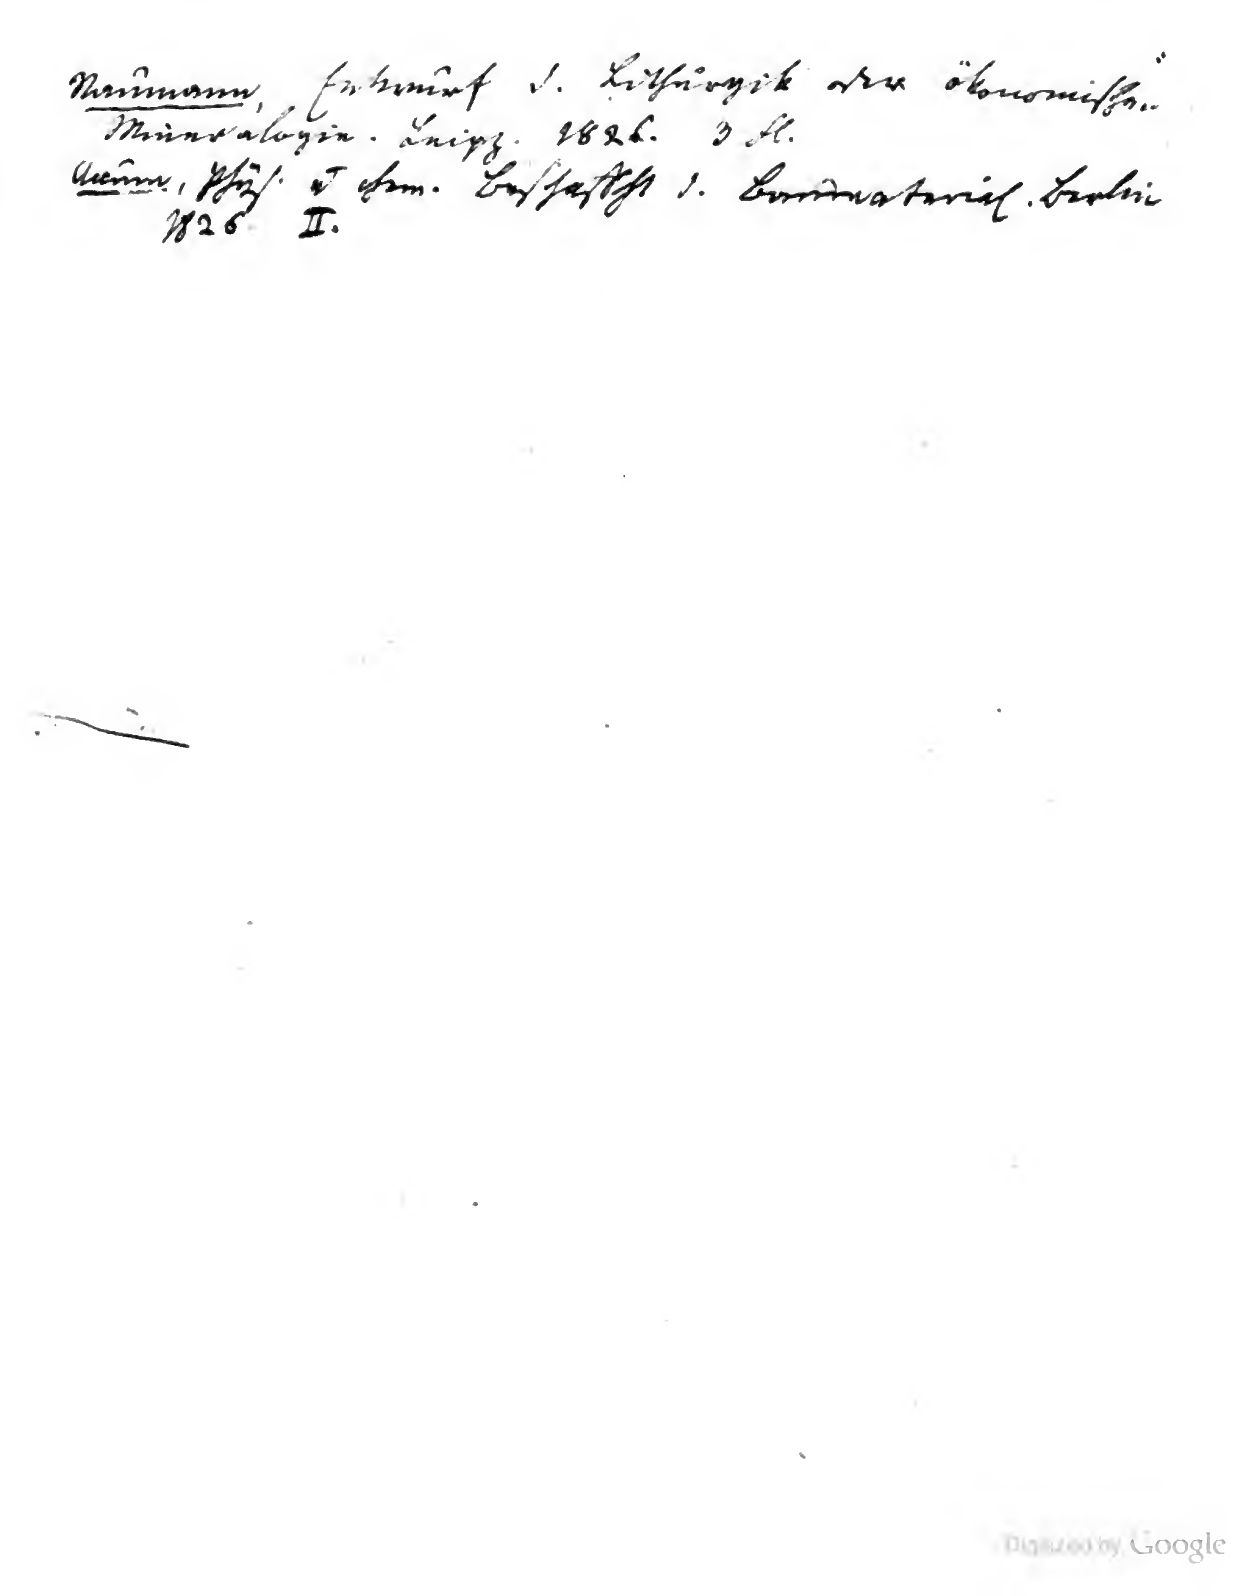 Naumann, Entwurf d. Lithurgik oder ökonomischen
Mineralogie. Leipz. 1826. 3 fl.
Accum, Phÿs. u chem. Beschaffht d. Baumaterial. Berlin
1826 II.
Digitized by Google